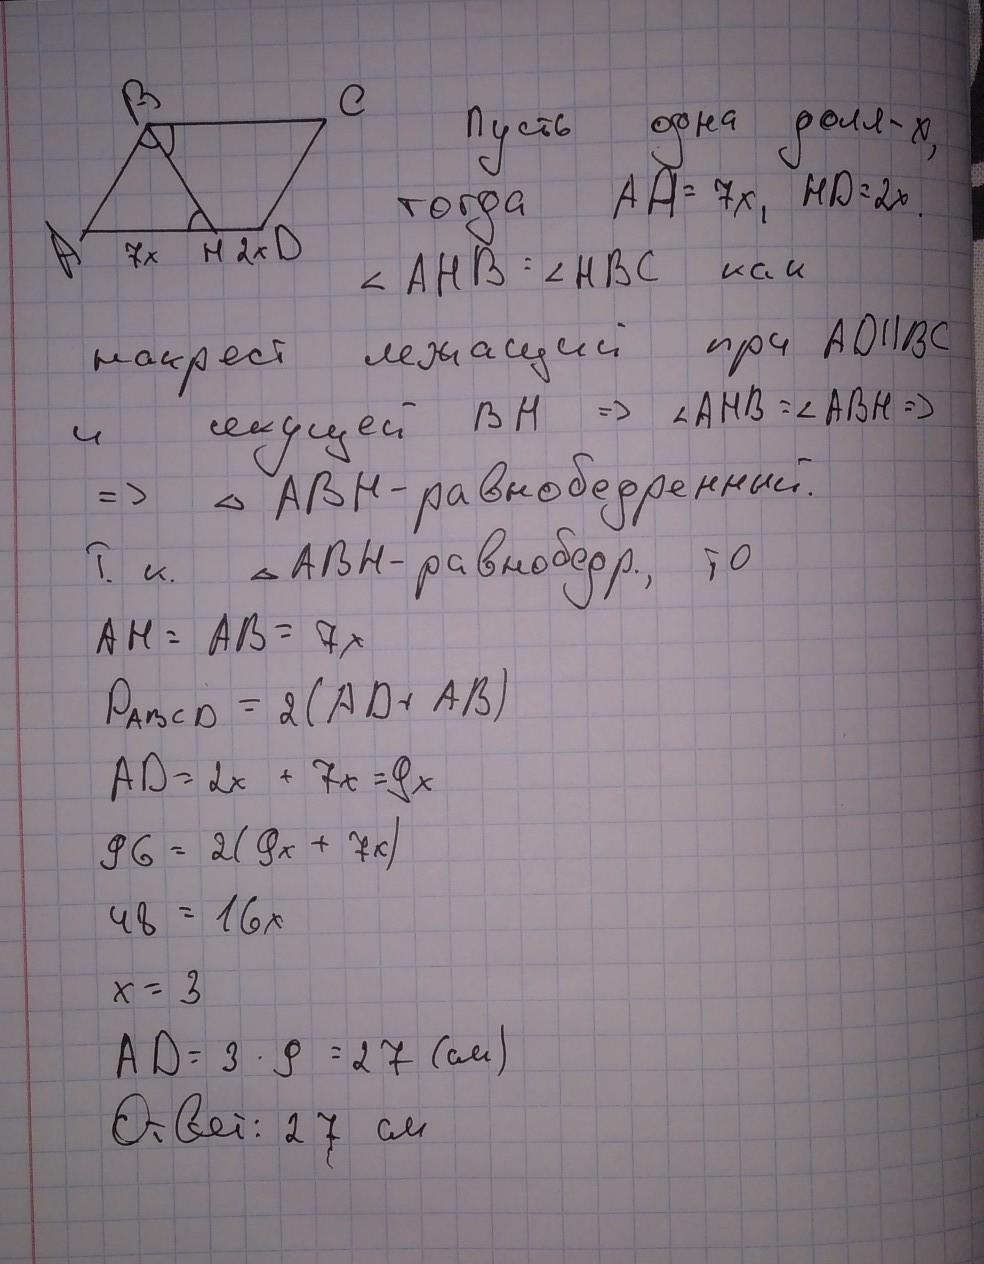 B C
A 7x H 2x D
Пусть одна доля - x,
тогда AH = 7x, HD = 2x.
∠AHB = ∠HBC как
накрест лежащий при AD||BC
и секущей BH => ∠AHB = ∠ABH =>
=> △ABH - равнобедренный.
Т. к. △ABH - равнобедр., то
AH = AB = 7x
P_ABCD = 2(AD + AB)
AD = 2x + 7x = 9x
96 = 2(9x + 7x)
48 = 16x
x = 3
AD = 3 · 9 = 27 (см)
Ответ: 27 см